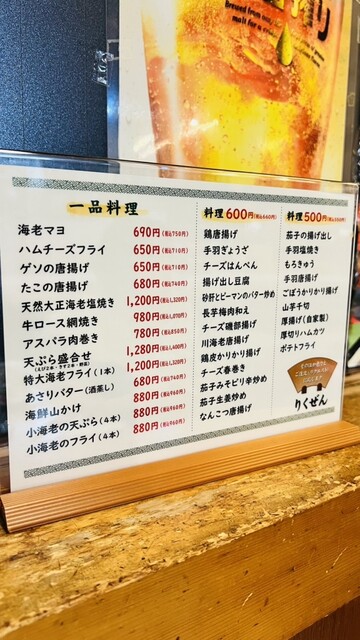 Brewed from
malt for a
一品料理
海老マヨ 690円(税込750円)
ハムチーズフライ 650円(税込710円)
ゲソの唐揚げ 650円(税込710円)
たこの唐揚げ 680円(税込740円)
天然大正海老塩焼き 1,200円(税込1,320円)
牛ロース網焼き 980円(税込1,070円)
アスパラ肉巻き 780円(税込850円)
天ぷら盛合せ 1,280円(税込1,400円)
特大海老フライ(1本) 1,200円(税込1,320円)
あさりバター(酒蒸し) 680円(税込740円)
海鮮山かけ 880円(税込960円)
小海老の天ぷら(4本) 880円(税込960円)
小海老のフライ(4本) 880円(税込960円)
料理600円(税込660円)
鶏唐揚げ
手羽ぎょうざ
チーズはんぺん
揚げ出し豆腐
砂肝とピーマンのバター炒め
長芋梅肉和え
チーズ磯部揚げ
川海老唐揚げ
鶏皮かりかり揚げ
チーズ春巻き
茄子みそピリ辛炒め
茄子生姜炒め
なんこつ唐揚げ
料理500円(税込550円)
茄子の揚げ出し
手羽塩焼き
もろきゅう
手羽唐揚げ
ごぼうかりかり揚げ
山芋千切
厚揚げ(自家製)
厚切りハムカツ
ポテトフライ
りくぜん